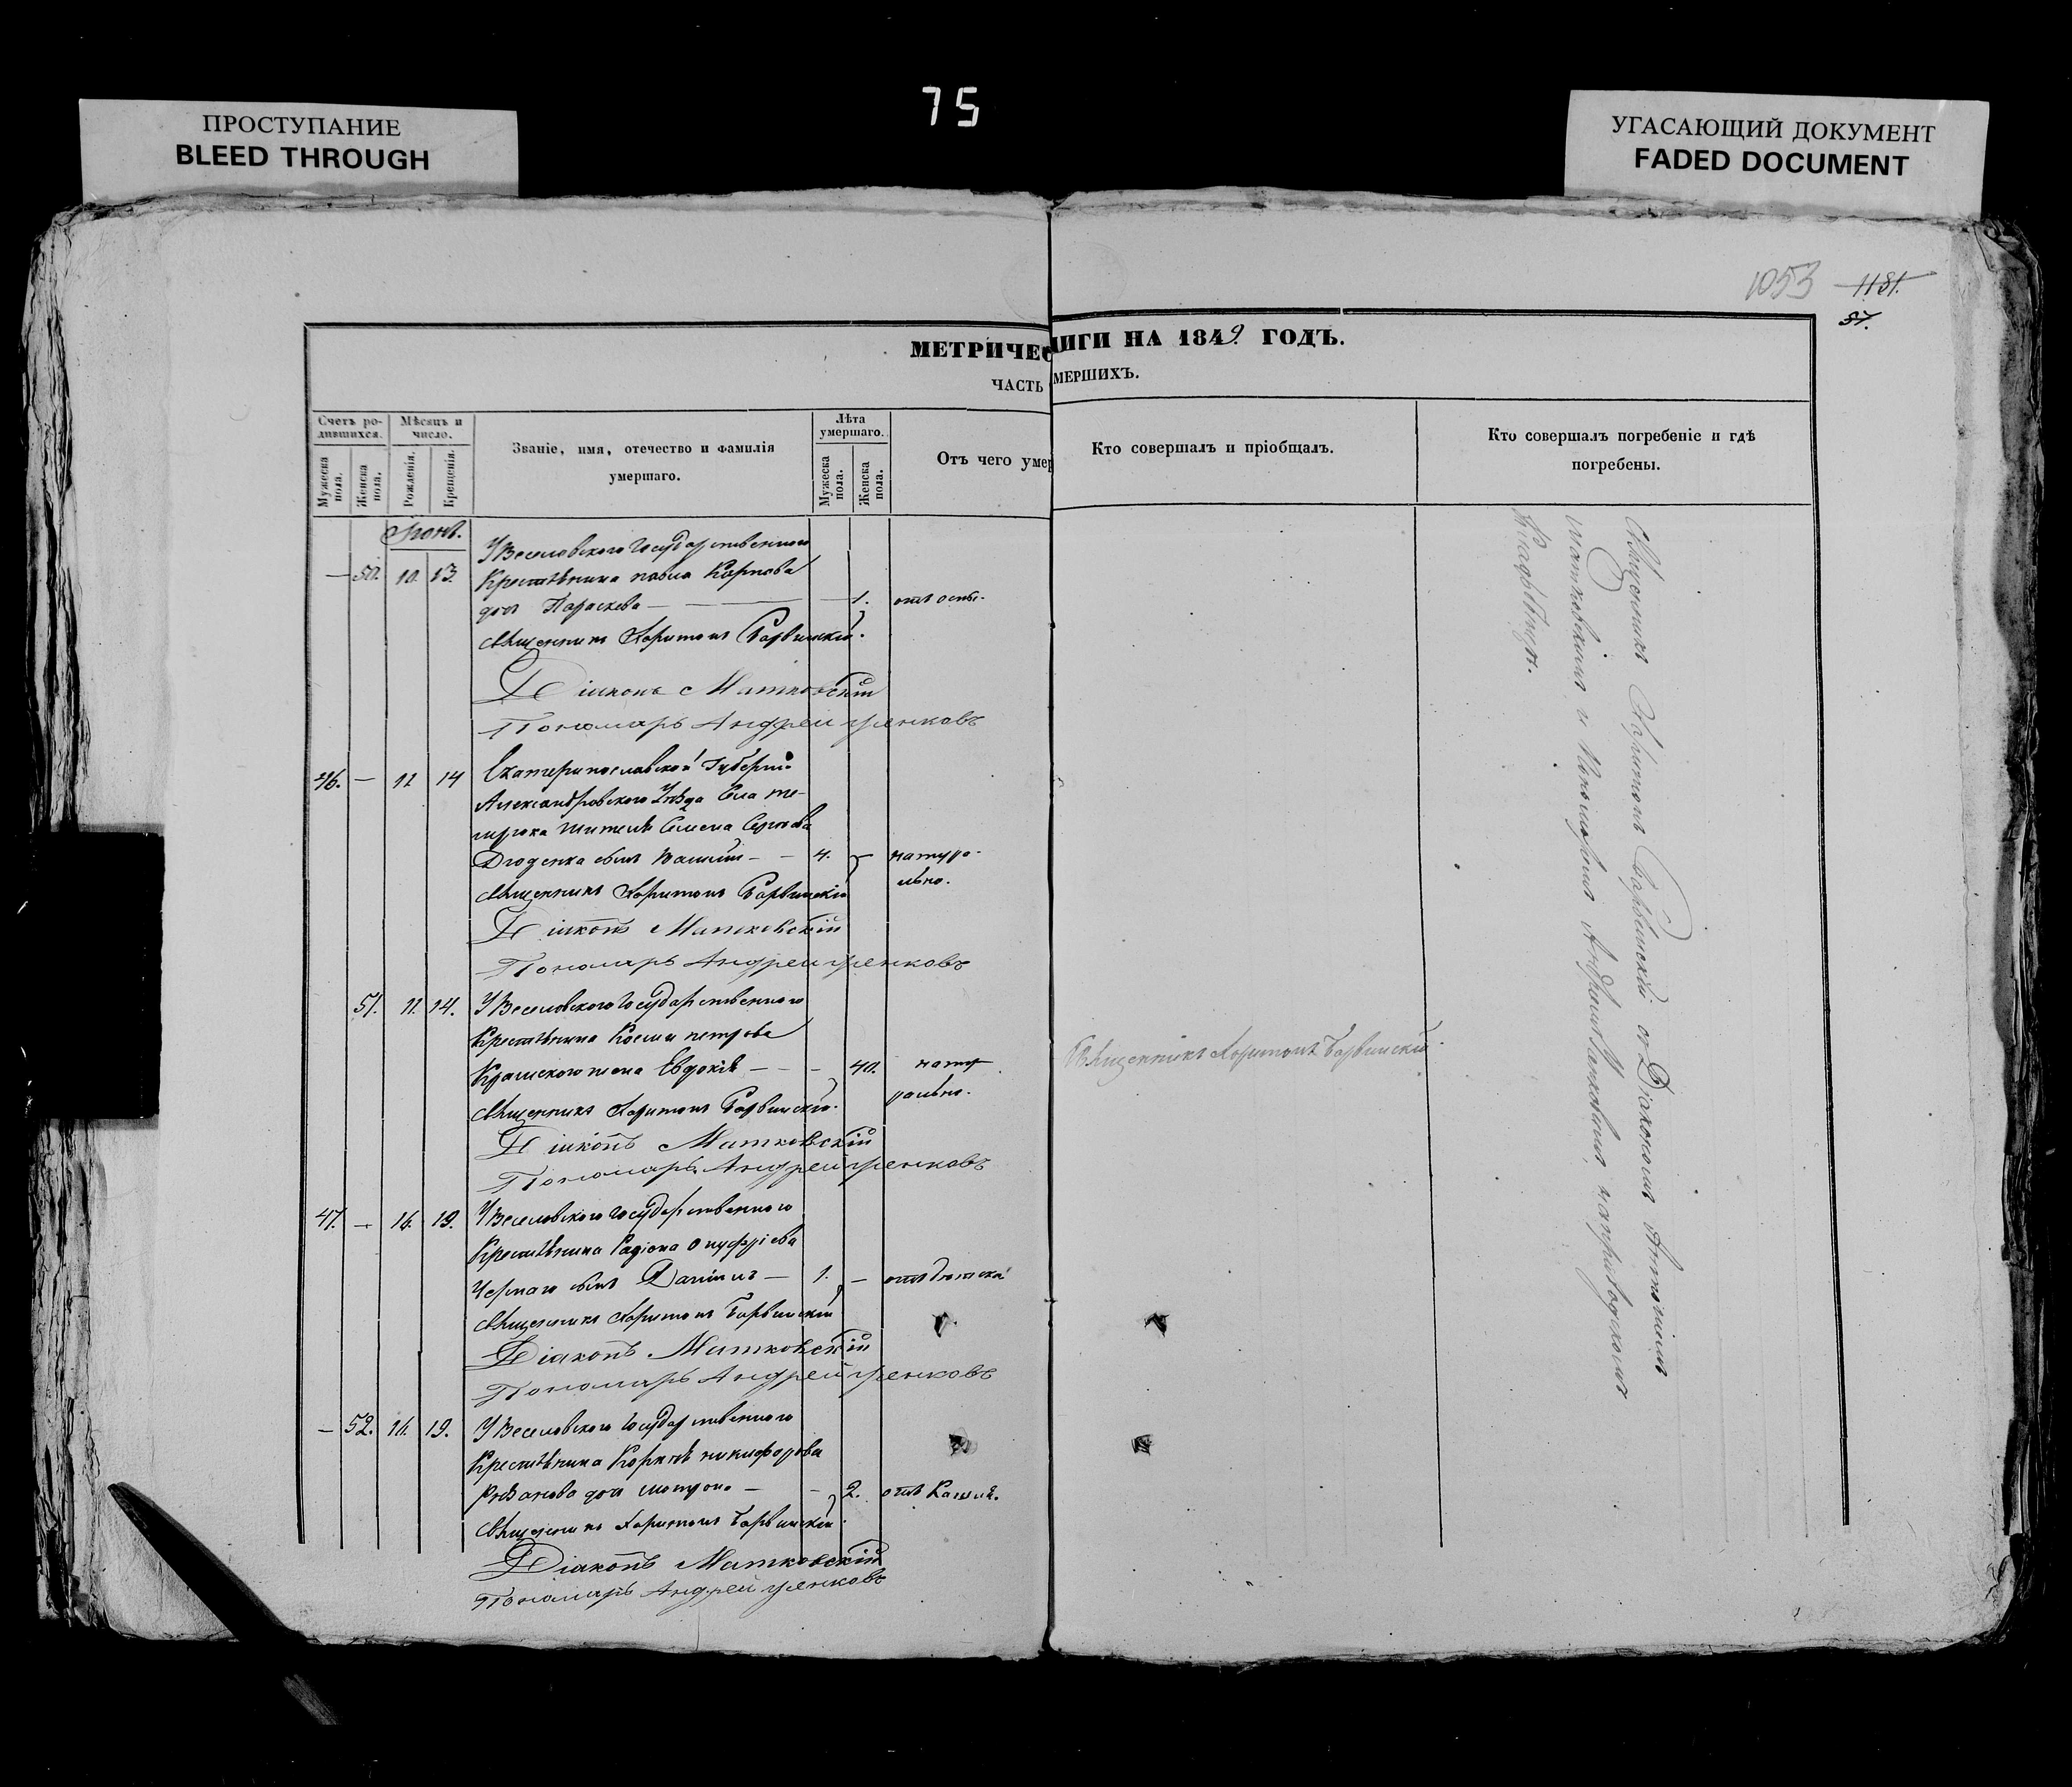 75
ПРОСТУПАНИЕ
BLEED THROUGH
УГАСАЮЩИЙ ДОКУМЕНТ
FADED DOCUMENT
1053 1181.
МЕТРИЧЕС
ИГИ НА 1849. ГОДЪ.
ЧАСТЬ
МЕРШИХЪ.
Счетъ ро-
дившихся.
Мужеска пола.
Женска пола.
Мѣсяцъ и
число.
Рожденія.
Крещенія.
Званіе, имя, отечество и фамилія
умершаго.
Лѣта
умершаго.
Мужеска пола.
Женска пола.
Отъ чего умер
Кто совершалъ и пріобщалъ.
Кто совершалъ погребеніе и гдѣ
погребены.
Іюнь.
У Веселовского Государственного
— 50. 10. 13. Крестьянина Павла Карпова
дочь Параскева — — 1. отъ оспы.
Священникъ Харитонъ Барвинскій.
Діаконъ Матковскій
Пономарь Андрей
46. — 12 14 Екатеринославской Губерніи
Александровского Уѣзда Села
жителя Семена
сынъ — — 4. — натура-
льно.
Священникъ Харитонъ Барвинскій
Діаконъ Матковскій
Пономарь Андрей
51. 11. 14. У Веселовского Государственного
Крестьянина Космы Петрова
жена Евдокія — — — 40. нату
рально.
Священникъ Харитонъ Барвинскій.
Діаконъ Матковскій
Пономарь Андрей
Священникъ Харитонъ Барвинскій
47. — 16. 19. У Веселовского Государственного
Крестьянина Радіона Онуфріева
Чернаго сынъ Даніилъ — 1. — отъ
Священникъ Харитонъ Барвинскій
Діаконъ Матковскій
Пономарь Андрей
— 52. 16. 19. У Веселовского Государственного
Крестьянина Никифорова
дочь — — 2. отъ Кашля.
Священникъ Харитонъ Барвинскій.
Діаконъ Матковскій
Пономарь Андрей
Священникъ Харитонъ Барвинскій съ Діакономъ Антоніемъ
Матковскимъ и Пономаремъ на приходскомъ
Кладбищѣ.